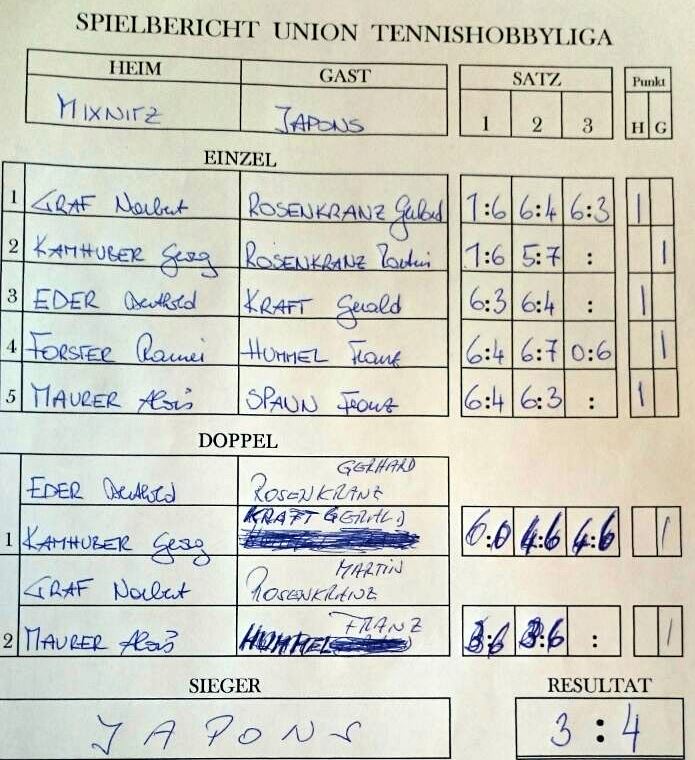 SPIELBERICHT UNION TENNISHOBBYLIGA
HEIM GAST SATZ Punkt
MIXNITZ JAPONS 1 2 3 H G
EINZEL
1 GRAF Norbert ROSENKRANZ Gerhard 1:6 6:4 6:3 1
2 KAMHUBER Georg ROSENKRANZ Martin 1:6 5:7 : 1
3 EDER Berthold KRAFT Gerald 6:3 6:4 : 1
4 FORSTER Rainer HUMMEL Franz 6:4 6:7 0:6 1
5 MAURER Alois SPANN Franz 6:4 6:3 : 1
DOPPEL
GERHARD
EDER Berthold ROSENKRANZ
1 KAMHUBER Georg KRAFT GERALD 6:0 4:6 4:6 1
MARTIN
GRAF Norbert ROSENKRANZ
FRANZ
2 MAURER Alois HUMMEL 3:6 3:6 : 1
SIEGER RESULTAT
JAPONS 3:4